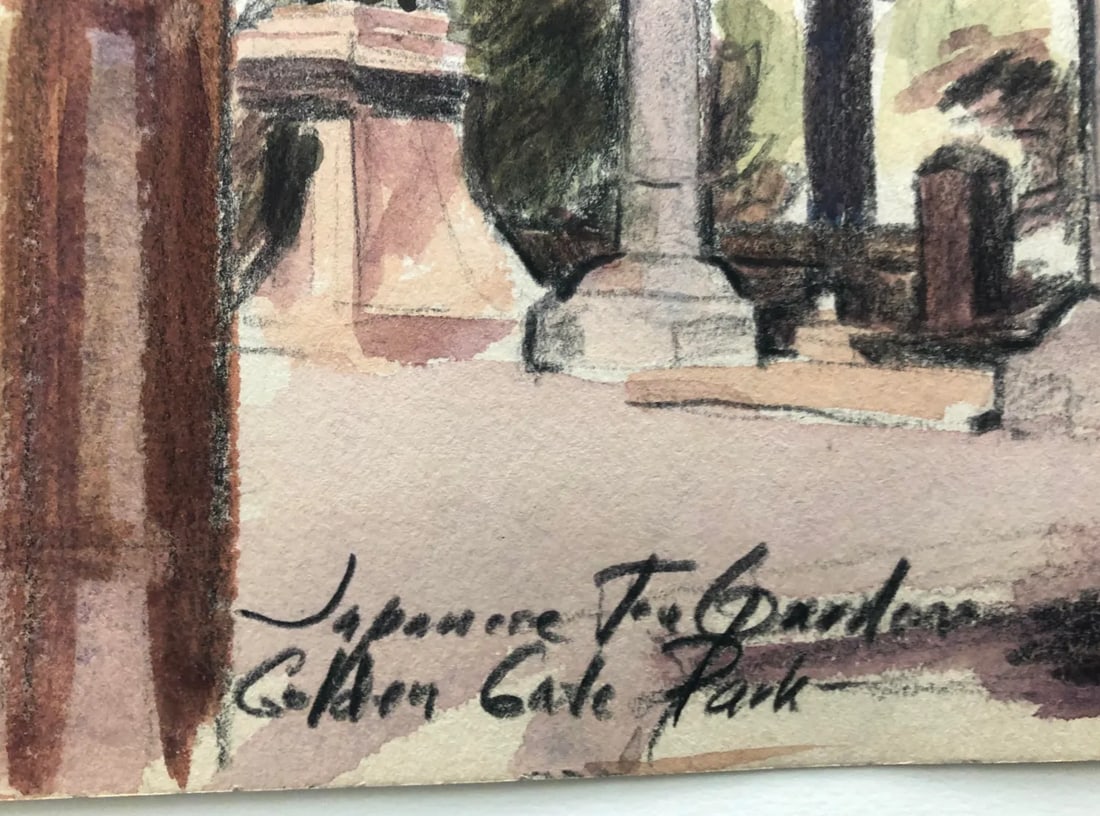 Japanese Tea Garden
Golden Gate Park